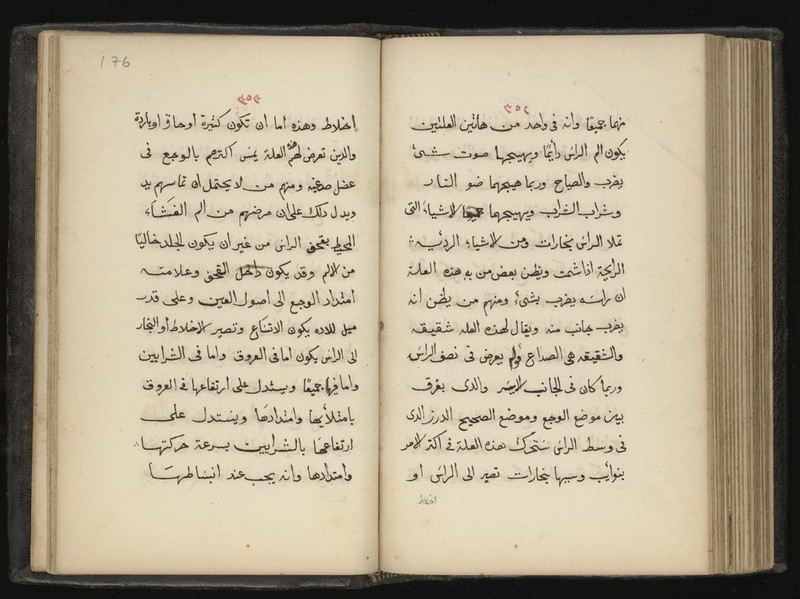 ٣٥٢
منهما جميعًا وانه فى واحد من هاتين العلتين
يكون الم الراس دايمًا ويهيجها صوت شىء
يضرب والصياح وربما هيجهما ضو النار
وشراب الشراب ويهيجهما جميعًا الاشياء التى
تملا الراس بخارات ومن الاشياء الرديه
الرايحة اذا شمت ويظن بعض من به هذه العلة
ان راسه يضرب بشىء ومنهم من يظن انه
يضرب جانب منه ويقال لهذه العله شقيقه
والشقيقه هى الصداع يعرض فى نصف الراس
وربما كان فى الجانب الايسر والذى يفرق
بين موضع الوجع وموضع الصحيح الدرز الذى
فى وسط الراس هذه العلة فى اكثر الامر
بنوايب وسببها بخارات تصير الى الراس او
اخلاط
176
٣٥٣
اخلاط وهذه اما ان تكون كثيرة او حارة او باردة
والذين تعرض لهم هذه العلة يمس اكثرهم بالوجع فى
عضل صدغيه ومنهم من لا يحتمل ان تماسهم يد
ويدل ذلك على ان مرضهم من الم الغشاء
المحيط بقحف الراس من غير ان يكون الجلد خاليًا
من الالم وقد يكون داخل القحف وعلامته
امتداد الوجع الى اصول العين وعلى قدر
ميل الماده يكون الاقناع وتصير الاخلاط او البخار
الى الراس يكون اما فى العروق واما فى الشرايين
واما فيها جميعًا ويستدل على ارتفاعها فى العروق
بامتلايها وامتدادها ويستدل على
ارتفاعها بالشرايين بسرعة حركتها
وامتدادها وانه يجب عند انبساطها